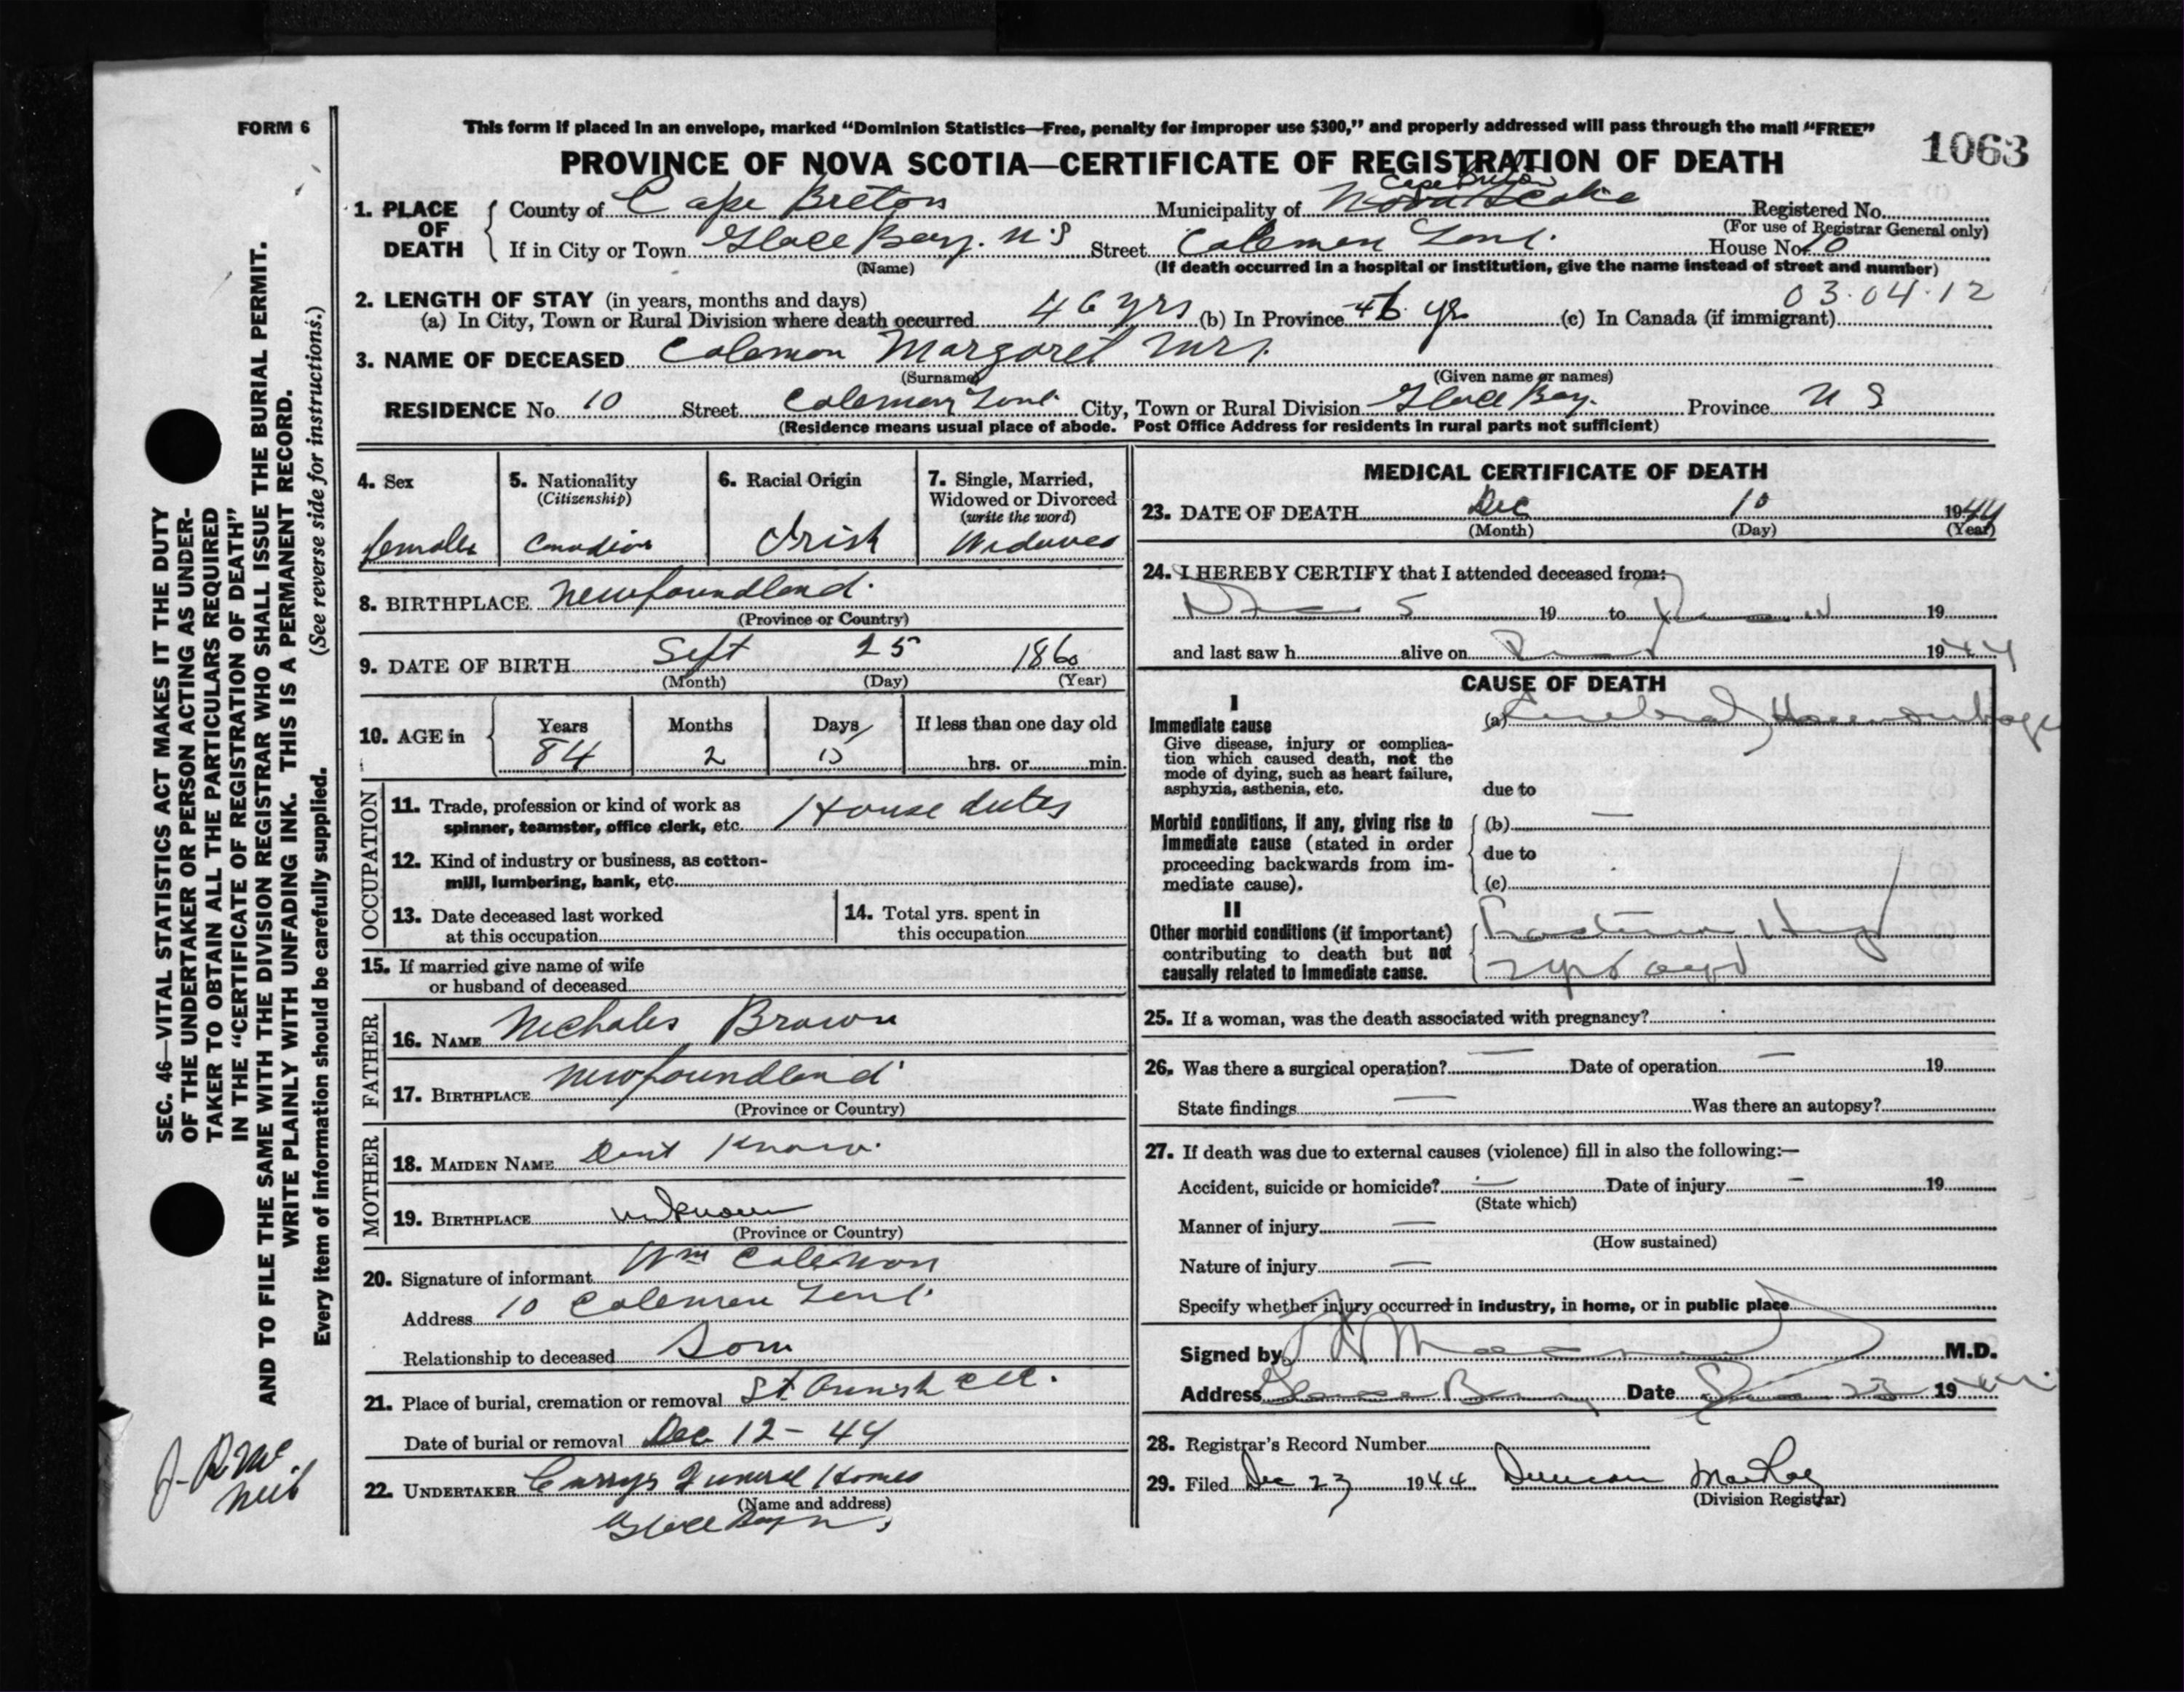 FORM 6
This form if placed in an envelope, marked “Dominion Statistics—Free, penalty for improper use $300,” and properly addressed will pass through the mail “FREE”
PROVINCE OF NOVA SCOTIA—CERTIFICATE OF REGISTRATION OF DEATH
1063
1. PLACE OF DEATH
County of Cape Breton Municipality of Nova Scotia Cape Breton Registered No.
(For use of Registrar General only)
If in City or Town Glace Bay. N.S Street Coleman House No. 10
(Name) (If death occurred in a hospital or institution, give the name instead of street and number)
2. LENGTH OF STAY (in years, months and days) 03.04.12
(a) In City, Town or Rural Division where death occurred 46 yrs (b) In Province 46 yr (c) In Canada (if immigrant)
3. NAME OF DECEASED Coleman Margaret Mrs.
(Surname) (Given name or names)
RESIDENCE No. 10 Street Coleman City, Town or Rural Division Glace Bay. Province N S
(Residence means usual place of abode. Post Office Address for residents in rural parts not sufficient)
4. Sex
female
5. Nationality
(Citizenship)
Canadian
6. Racial Origin
Irish
7. Single, Married,
Widowed or Divorced
(write the word)
Widowed
8. BIRTHPLACE Newfoundland.
(Province or Country)
9. DATE OF BIRTH Sept 25 1860
(Month) (Day) (Year)
10. AGE in
Years Months Days If less than one day old
84 2 15 hrs. or min.
OCCUPATION
11. Trade, profession or kind of work as
spinner, teamster, office clerk, etc. House duties
12. Kind of industry or business, as cotton-
mill, lumbering, bank, etc.
13. Date deceased last worked
at this occupation
14. Total yrs. spent in
this occupation
15. If married give name of wife
or husband of deceased
FATHER
16. NAME Nicholas Brown
17. BIRTHPLACE Newfoundland
(Province or Country)
MOTHER
18. MAIDEN NAME Dont Know.
19. BIRTHPLACE unknown
(Province or Country)
20. Signature of informant Wm Coleman
Address 10 Coleman
Relationship to deceased Son
21. Place of burial, cremation or removal St
Date of burial or removal Dec 12 - 44
22. UNDERTAKER Currys Funeral Homes
(Name and address)
Glace Bay
MEDICAL CERTIFICATE OF DEATH
23. DATE OF DEATH Dec 10 1944
(Month) (Day) (Year)
24. I HEREBY CERTIFY that I attended deceased from:
Dec 5 19 to 19
and last saw h alive on 1944
CAUSE OF DEATH
I
Immediate cause
Give disease, injury or complica-
tion which caused death, not the
mode of dying, such as heart failure,
asphyxia, asthenia, etc.
(a) Cerebral Haemorrhage
due to
Morbid conditions, if any, giving rise to
immediate cause (stated in order
proceeding backwards from im-
mediate cause).
(b) —
due to
(c)
II
Other morbid conditions (if important)
contributing to death but not
causally related to immediate cause.
Fracture Hip
2 yrs ago
25. If a woman, was the death associated with pregnancy?
26. Was there a surgical operation? — Date of operation — 19
State findings — Was there an autopsy?
27. If death was due to external causes (violence) fill in also the following:—
Accident, suicide or homicide? — Date of injury — 19
(State which)
Manner of injury —
(How sustained)
Nature of injury —
Specify whether injury occurred in industry, in home, or in public place
Signed by M.D.
Address Glace Bay Date 23 19
28. Registrar's Record Number
29. Filed Dec 23 1944 Duncan
(Division Registrar)
SEC. 46—VITAL STATISTICS ACT MAKES IT THE DUTY
OF THE UNDERTAKER OR PERSON ACTING AS UNDER-
TAKER TO OBTAIN ALL THE PARTICULARS REQUIRED
IN THE “CERTIFICATE OF REGISTRATION OF DEATH”
AND TO FILE THE SAME WITH THE DIVISION REGISTRAR WHO SHALL ISSUE THE BURIAL PERMIT.
WRITE PLAINLY WITH UNFADING INK. THIS IS A PERMANENT RECORD.
Every item of information should be carefully supplied. (See reverse side for instructions.)